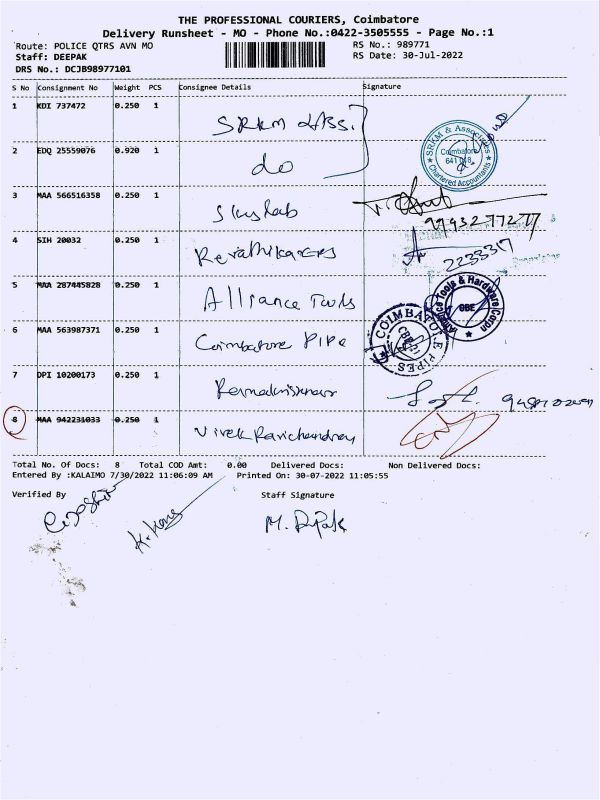 THE PROFESSIONAL COURIERS, Coimbatore
Delivery Runsheet - MO - Phone No.:0422-3505555 - Page No.:1
Route: POLICE QTRS AVN MO RS No.: 989771
Staff: DEEPAK RS Date: 30-Jul-2022
DRS No.: DCJB98977101
S No Consignment No Weight PCS Consignee Details Signature
1 KDI 737472 0.250 1 SRKM &Ass.
SRKM & Associates
Coimbatore
641 048
Chartered Accountants
2 EDQ 25559076 0.920 1 do
3 MAA 566516358 0.250 1
9943277277
4 SIH 20032 0.250 1
2233317
5 MAA 287445828 0.250 1 Alliance Tools
Alliance Tools & Hardware Corpn
CBE
6 MAA 563987371 0.250 1 Coimbatore Pipe
COIMBATORE PIPES
7 DPI 10200173 0.250 1
8 MAA 942231033 0.250 1 Vivek Ravichandran
Total No. Of Docs: 8 Total COD Amt: 0.00 Delivered Docs: Non Delivered Docs:
Entered By :KALAIMO 7/30/2022 11:06:09 AM Printed On: 30-07-2022 11:05:55
Verified By Staff Signature
M. Dipak